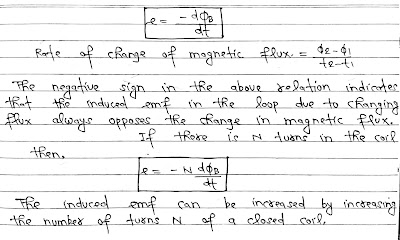 e = -dϕB/dt
Rate of change of magnetic flux = ϕ2-ϕ1/t2-t1
The negative sign in the above relation indicates
that the induced emf in the loop due to changing
flux always opposes the change in magnetic flux.
If there is N turns in the coil
then,
e = - N dϕB/dt
The induced emf can be increased by increasing
the number of turns N of a closed coil.